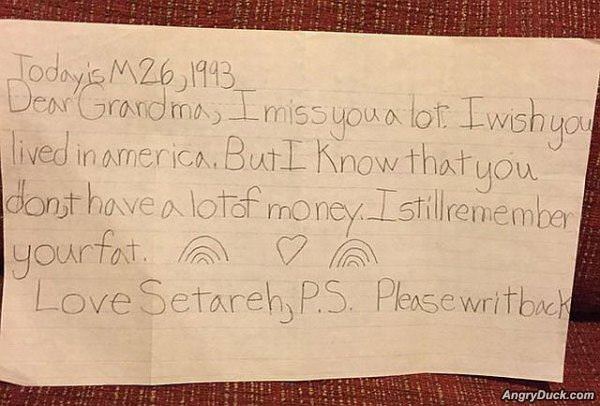 Today is M26, 1993
Dear Grandma, I miss you a lot. I wish you
lived in america. But I Know that you
don,t have a lot of money. I still remember
your fat.
Love Setareh, P.S. Please writ back
AngryDuck.com